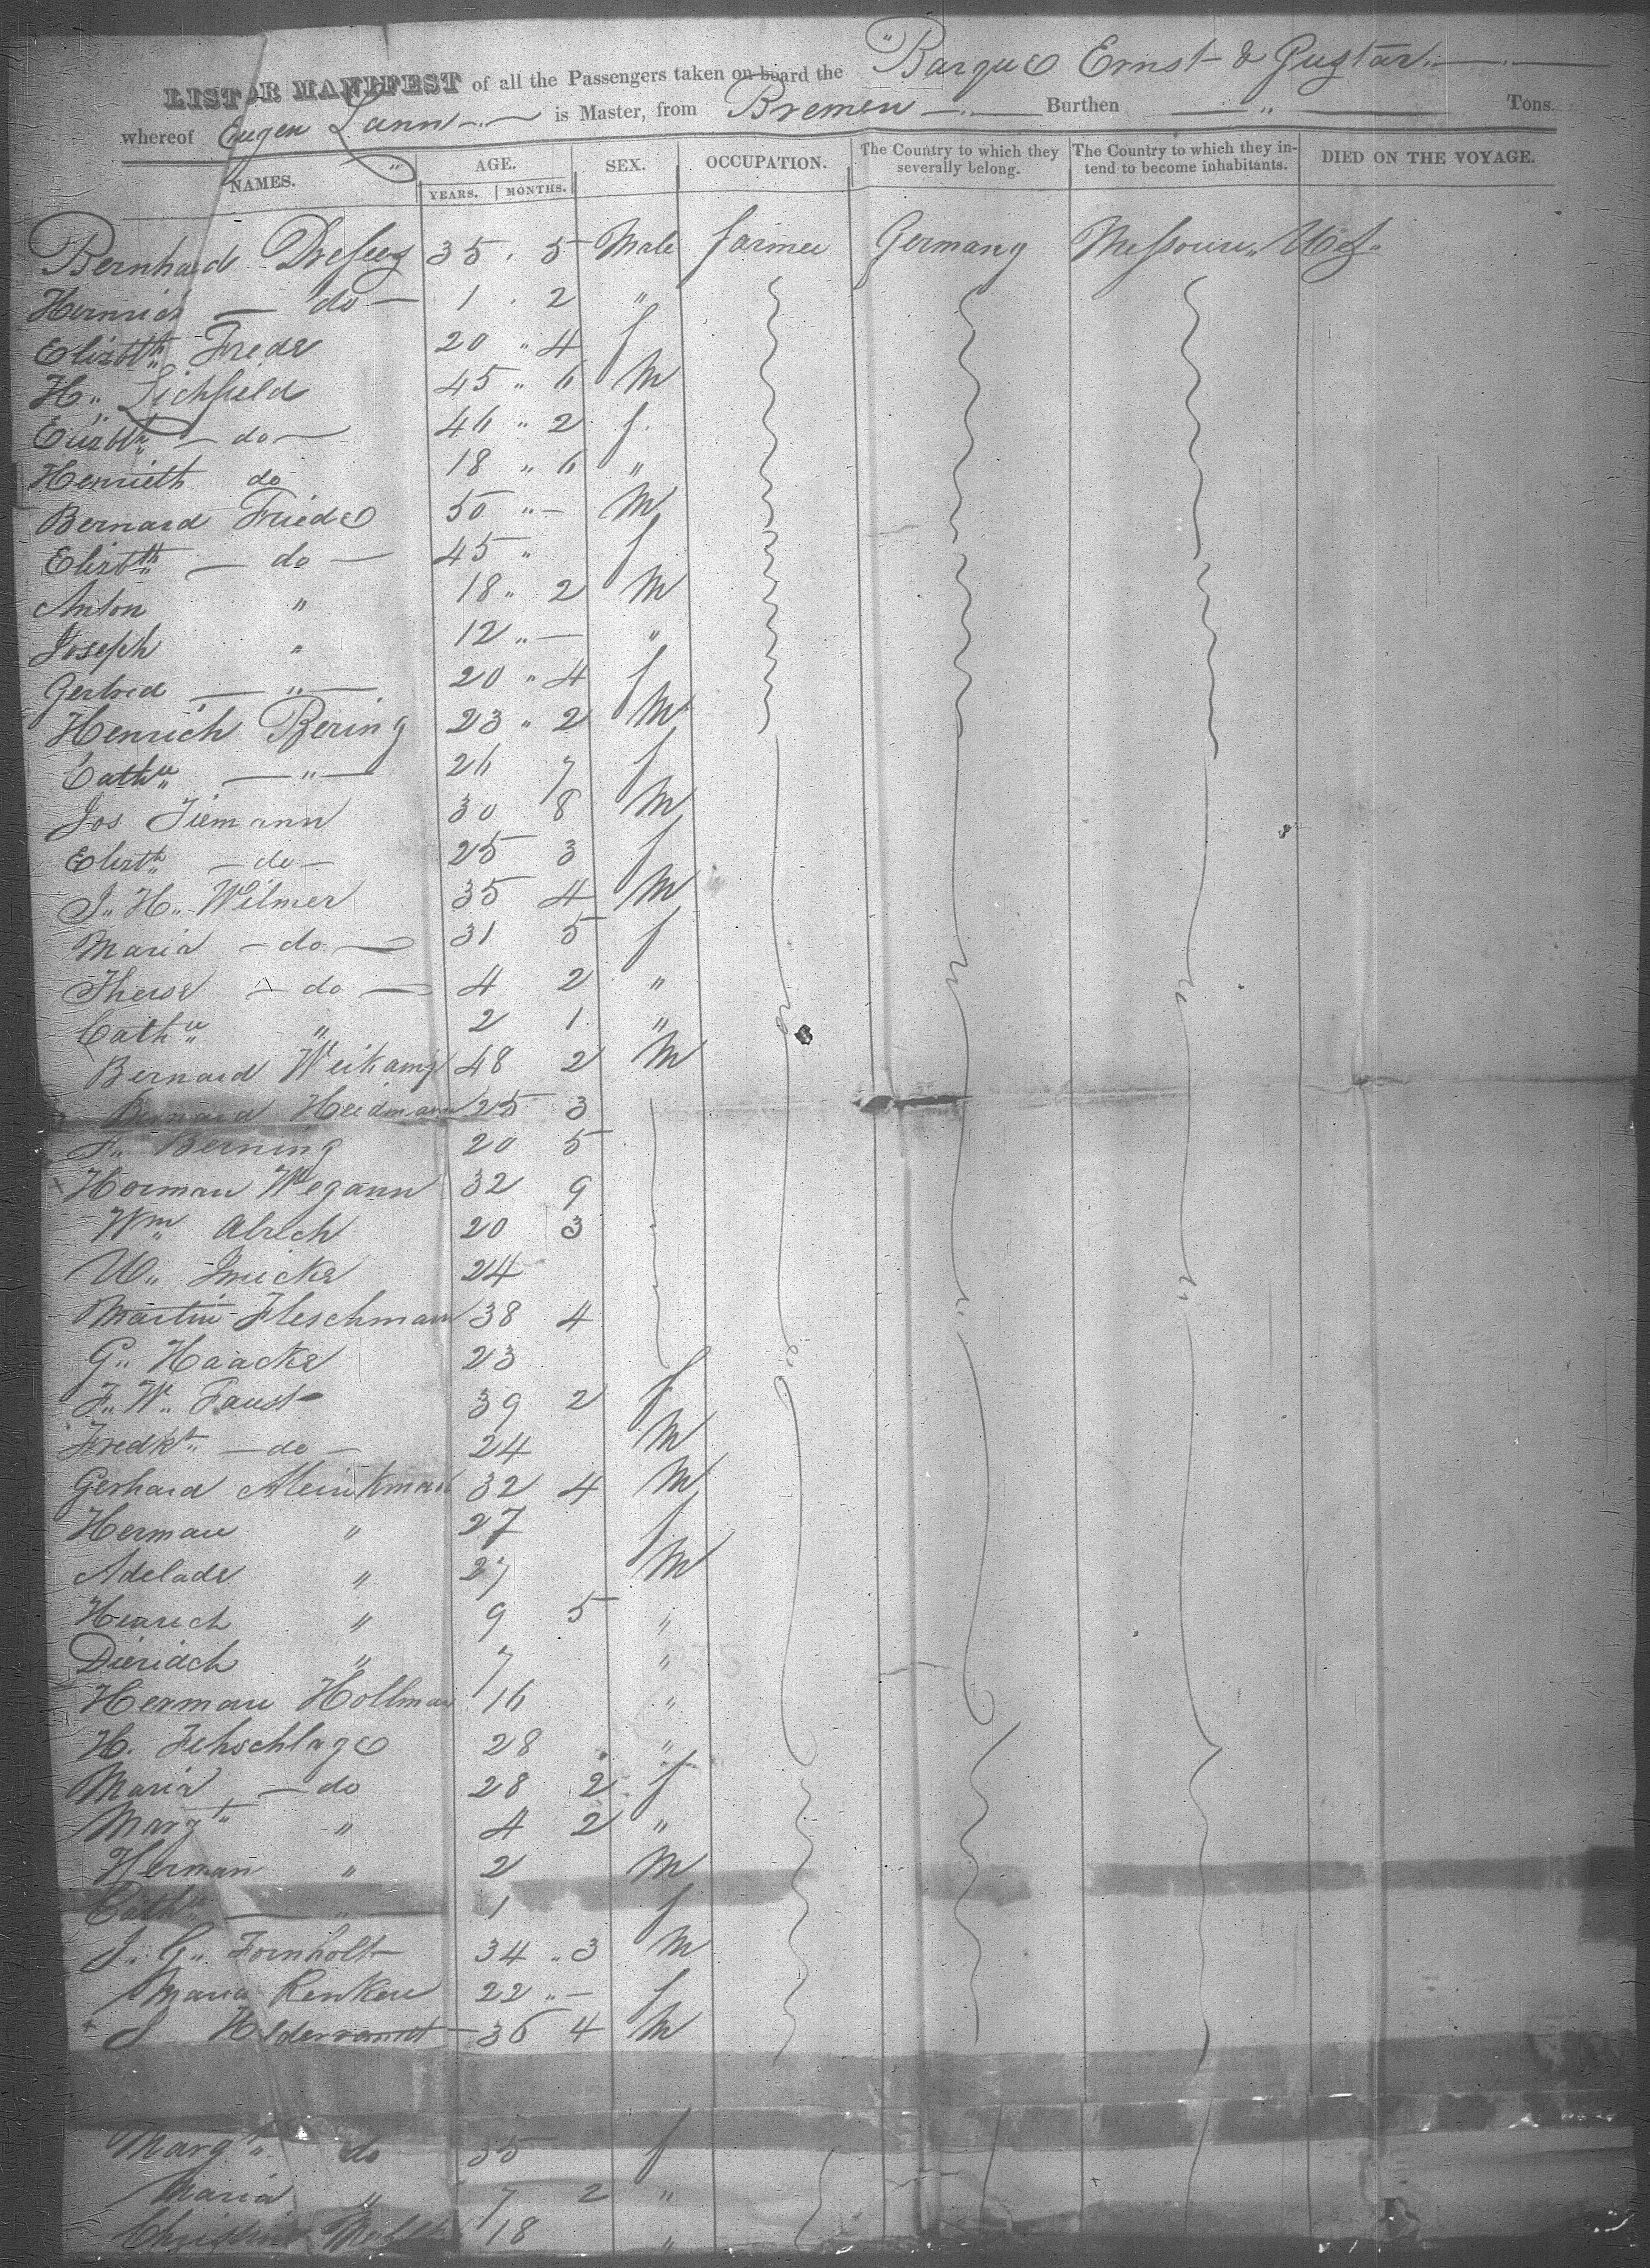 LIST OR MANIFEST of all the Passengers taken on board the "Barque Ernst & Gustav.
whereof Eugen Lann is Master, from Bremen Burthen " Tons.
NAMES. AGE. YEARS. MONTHS. SEX. OCCUPATION. The Country to which they severally belong. The Country to which they intend to become inhabitants. DIED ON THE VOYAGE.
Bernhard 35 . 5 Male farmer Germany Missouri U.S.
Heinrich - do - 1 . 2 "
Elizbth Frede 20 " 4 f
H. Lichfield 45 " 6 M
Elizbth - do - 46 " 2 f.
Henrieth do 18 " 6 "
Bernard Friede 50 " - M
Elizbth - do - 45 " f
Anton " 18 " 2 M
Joseph " 12 " - "
Gertred - " - 20 " 4 f
Henrich Bering 23 " 2 M
Cath - " - 26 7 f
Jos Tiemann 30 8 M
Elizth - do - 25 3 f
J. H. Wilmer 35 4 M
Maria - do - 31 5 f
Therse - do - 4 2 "
Cath " 2 1 "
Bernard Weikamp 48 2 M
Bernard Heidmann 25 3
F. Berning 20 5
Herman Wegann 32 9
Wm Alrech 20 3
W. 24
Martin Fleschmann 38 4
G. Haacke 23
F. W. Faust 39 2 f
Fredk - do - 24 M
Gerhard Meinkman 32 4 M
Herman " 27 f
Adelade " 27 M
Hearich " 9 5 "
Dieriach " 7 "
Herman Hollman 16 "
H. Fehschlage 28 "
Maria - do 28 2 f
Margt " 4 2 "
Herman " 2 M
Cath " 1 f
J. G. Fornholt 34 " 3 M
Maria Renken 22 " - f
+ J 36 4 M
Margt do 35 f
Maria " 7 2 "
18 "